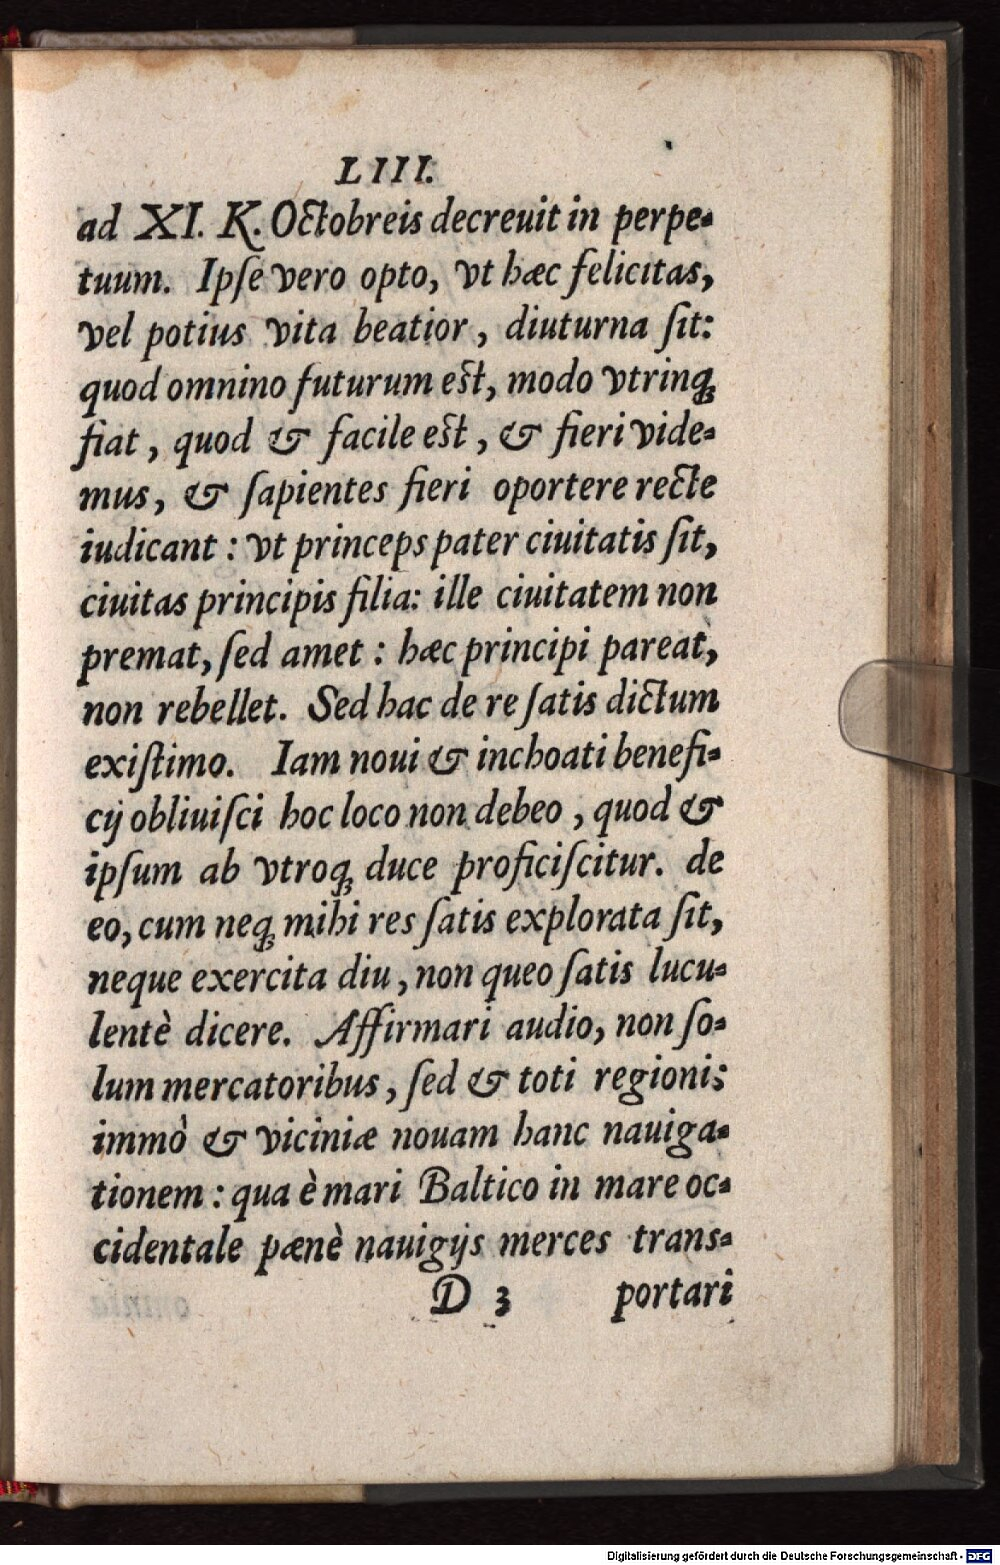 LIII.
ad XI. K. Octobreis decreuit in perpe-
tuum. Ipſe vero opto, vt hæc felicitas,
vel potius vita beatior, diuturna ſit:
quod omnino futurum est, modo vtrinq́;
fiat, quod & facile est, & fieri vide-
mus, & ſapientes fieri oportere recte
iudicant: vt princeps pater ciuitatis ſit,
ciuitas principis filia: ille ciuitatem non
premat, ſed amet: hæc principi pareat,
non rebellet. Sed hac de re ſatis dictum
exiſtimo. Iam noui & inchoati benefi-
cij obliuiſci hoc loco non debeo, quod &
ipſum ab vtroq; duce proficiſcitur. de
eo, cum neq; mihi res ſatis explorata ſit,
neque exercita diu, non queo ſatis lucu-
lentè dicere. Affirmari audio, non ſo-
lum mercatoribus, ſed & toti regioni;
immò & viciniæ nouam hanc nauiga-
tionem: qua è mari Baltico in mare oc-
cidentale pænè nauigijs merces trans-
D 3 portari
Digitalisierung gefördert durch die Deutsche Forschungsgemeinschaft - DFG